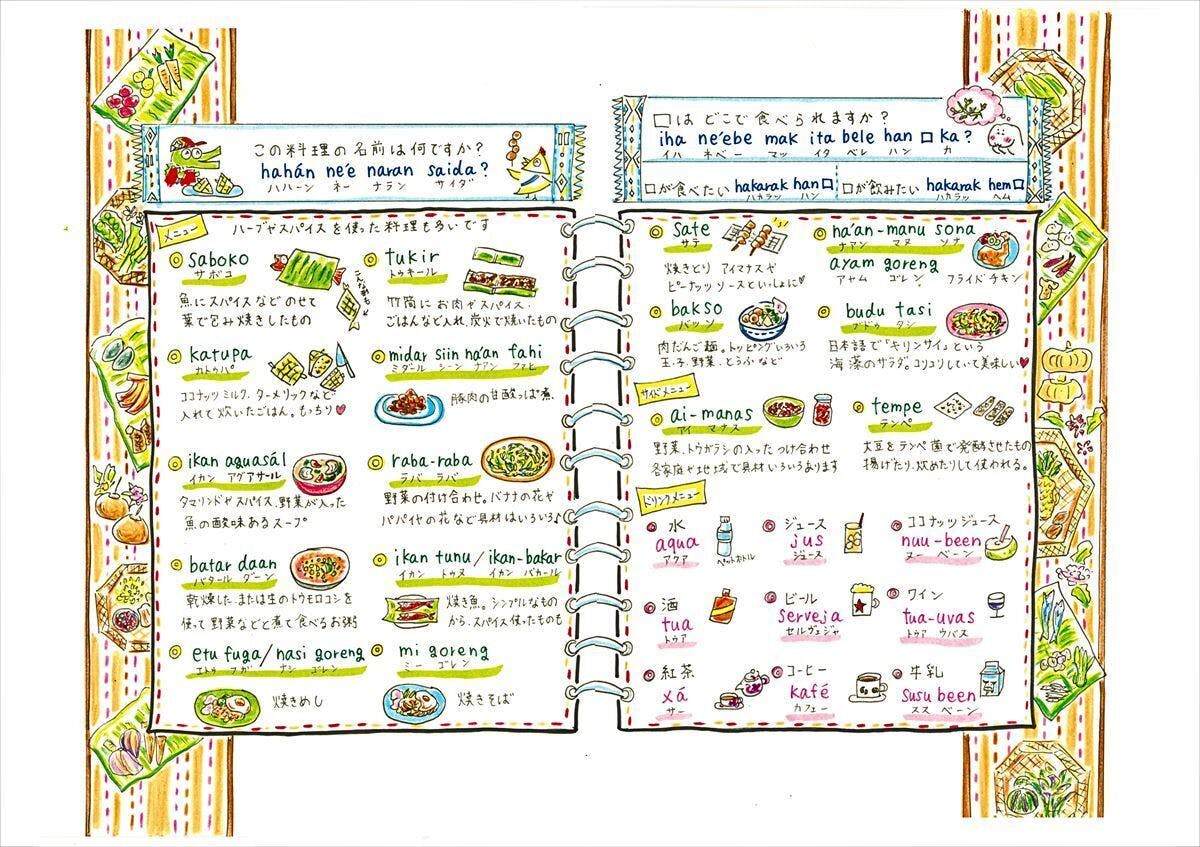 この料理の名前は何ですか?
hahán ne'e naran saida?
ハハーン ネー ナラン サイダ
メニュー
ハーブやスパイスを使った料理も多いです
saboko
サボコ
こんな形も
魚にスパイスなどのせて
葉で包み焼きしたもの
tukir
トゥキール
竹筒にお肉やスパイス、
ごはんなど入れ、炭火で焼いたもの
katupa
カトゥパ
ココナッツミルク、ターメリックなど
入れて炊いたごはん。もっちり♥
midar siin na'an fahi
ミダール シーン ナアン ファヒ
豚肉の甘酸っぱ煮。
ikan aguasál
イカン アグアサール
タマリンドやスパイス、野菜が入った
魚の酸味あるスープ
raba-raba
ラバ ラバ
野菜の付け合わせ。バナナの花や
パパイヤの花など具材はいろいろ♪
batar daan
バタール ダーン
乾燥した、または生のトウモロコシを
使って野菜などと煮て食べるお粥
ikan tunu/ikan-bakar
イカン トゥヌ イカン バカール
焼き魚。シンプルなもの
から、スパイス使ったものも
etu fuga/nasi goreng
エトゥ フガ ナシ ゴレン
焼きめし
mi goreng
ミー ゴレン
焼きそば
□は どこで 食べられますか?
iha ne'ebe mak ita bele han □ ka?
イハ ネベー マッ イタ ベレ ハン カ
□が食べたい hakarak han□
ハカラッ ハン
□が飲みたい hakarak hem□
ハカラッ ヘム
sate
サテ
焼きとり アイマナスや
ピーナッツソースといっしょに♥
na'an-manu sona
ナアン マヌ ソナ
ayam goreng
アヤム ゴレン フライドチキン
bakso
バッソ
肉だんご麺。トッピングいろいろ
玉子、野菜、とうふなど
budu tasi
ブドゥ タシ
日本語で「キリンサイ」という
海藻のサラダ。コリコリしていて美味しい♥
サイドメニュー
ai-manas
アイ マナス
野菜、トウガラシの入ったつけ合わせ
各家庭や地域で具材いろいろあります
tempe
テンペ
大豆をテンペ菌で発酵させたもの
揚げたり、炒めたりして使われる。
ドリンクメニュー
水
aqua
アクア
ペットボトル
ジュース
jus
ジュース
ココナッツジュース
nuu-been
ヌー ベーン
酒
tua
トゥア
ビール
serveja
セルヴェジャ
ワイン
tua-uvas
トゥア ウバス
紅茶
xá
サー
コーヒー
kafé
カフェー
牛乳
susu been
スス ベーン